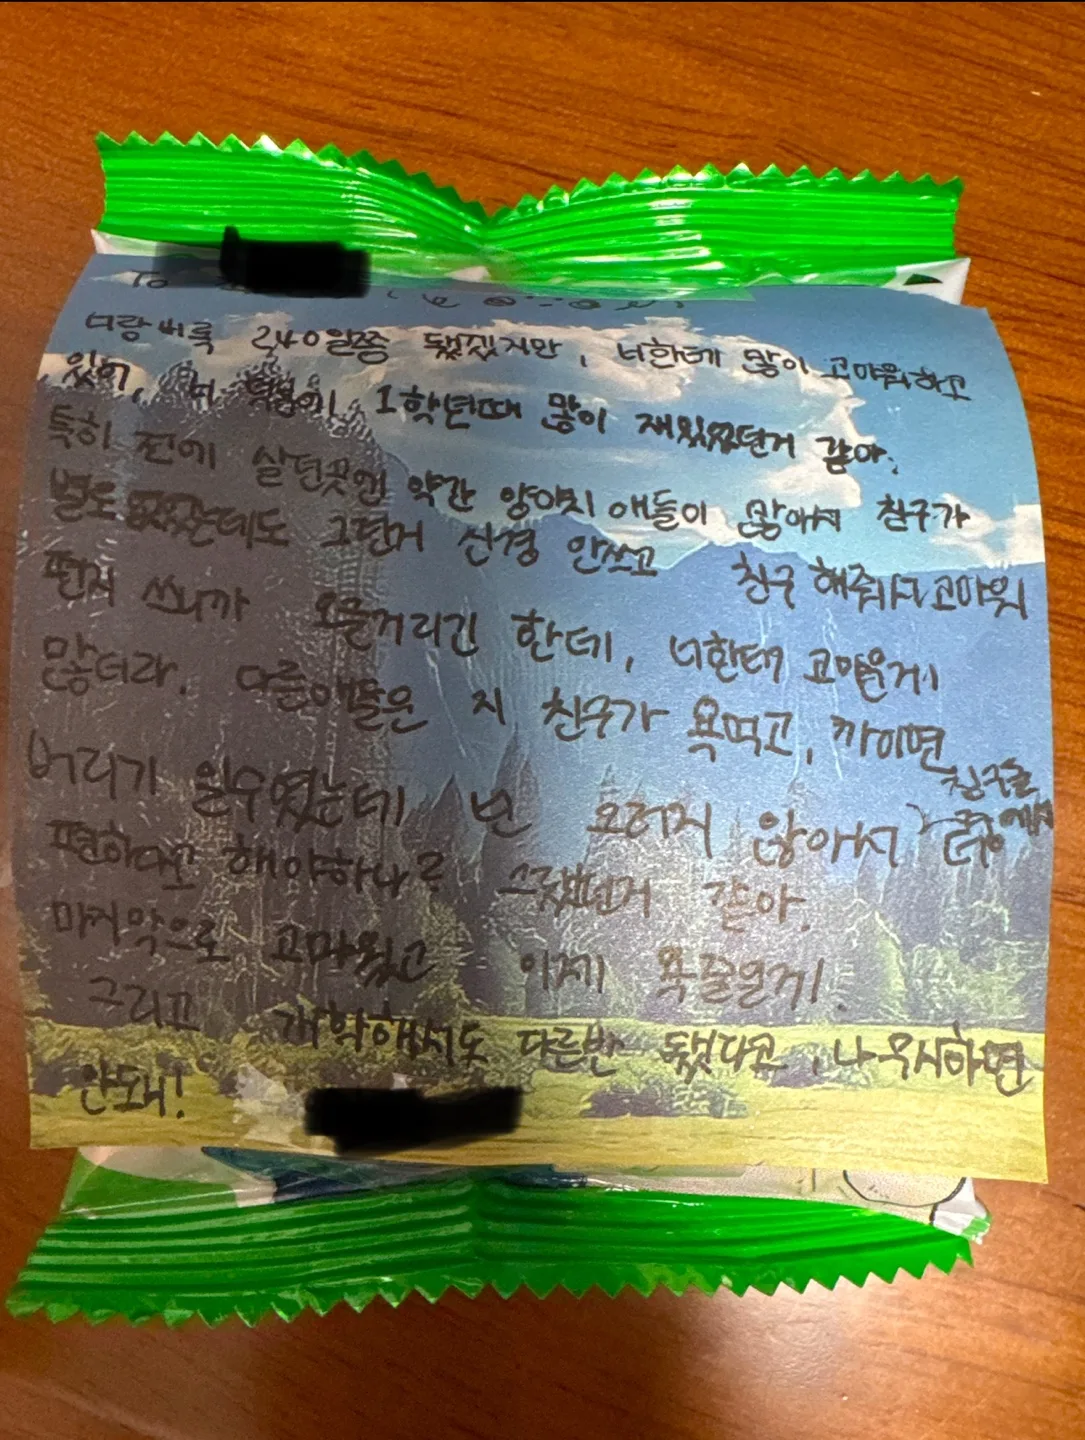 To
너랑 비록 240일쯤 됐겠지만, 너한테 많이 고마워하고
있어, 너 덕분에 1학년때 많이 재밌었던거 같아.
특히 전에 살던곳엔 약간 양아치 애들이 많아서 친구가
별로 없었는데도 그런거 신경 안쓰고 친구 해줘서 고마워
편지 쓰니까 오글거리긴 한데, 너한테 고마운게
많더라. 다른애들은 지 친구가 욕먹고, 까이면 친구를
버리기 일수였는데 넌 그러지 않아서
편하다고 해야하나? 그랬던거 같아.
마지막으로 고마웠고 이제 욕줄일게!
그리고 개학해서도 다른반 됐다고, 나 무시하면
안돼!